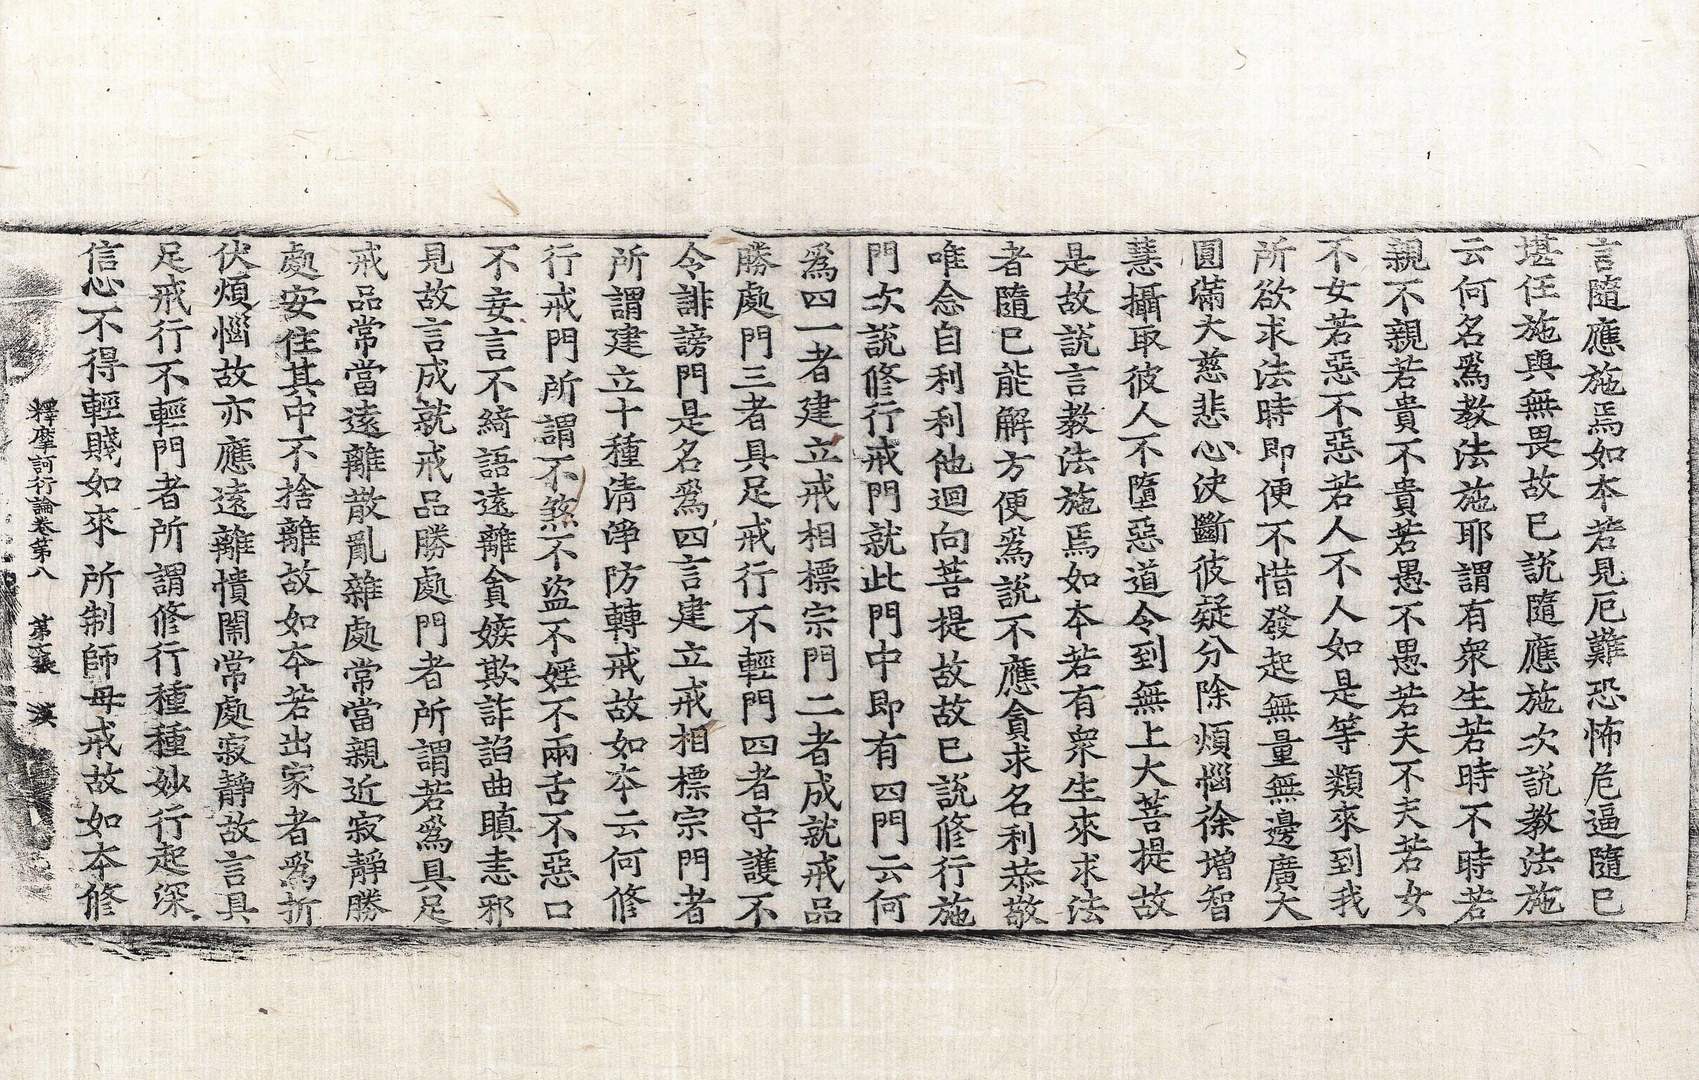 言隨應施焉如本若見厄難恐怖危逼隨已
堪任施與無畏故已説隨應施次説教法施
云何名爲教法施耶謂有衆生若時不時若
親不親若貴不貴若愚不愚若夫不夫若女
不女若惡不惡若人不人如是等類來到我
所欲求法時即便不惜發起無量無邊廣大
圓滿大慈悲心決斷彼疑分除煩惱徐增智
慧攝取彼人不墮惡道令到無上大菩提故
是故説言教法施焉如本若有衆生來求法
者隨已能解方便爲説不應貪求名利恭敬
唯念自利利他迴向菩提故故已説修行施
門次説修行戒門就此門中即有四門云何
爲四一者建立戒相標宗門二者成就戒品
勝處門三者具足戒行不輕門四者守護不
令誹謗門是名爲四言建立戒相標宗門者
所謂建立十種清淨防轉戒故如本云何修
行戒門所謂不煞不盜不婬不兩舌不惡口
不妄言不綺語遠離貪嫉欺詐諂曲瞋恚邪
見故言成就戒品勝處門者所謂若爲具足
戒品常當遠離散亂雜處常當親近寂靜勝
處安住其中不捨離故如本若出家者爲折
伏煩惱故亦應遠離憒閙常處寂靜故言具
足戒行不輕門者所謂修行種種妙行起深
信心不得輕賤如來所制師毋戒故如本修
釋摩訶衍論卷第八 第 張 漢